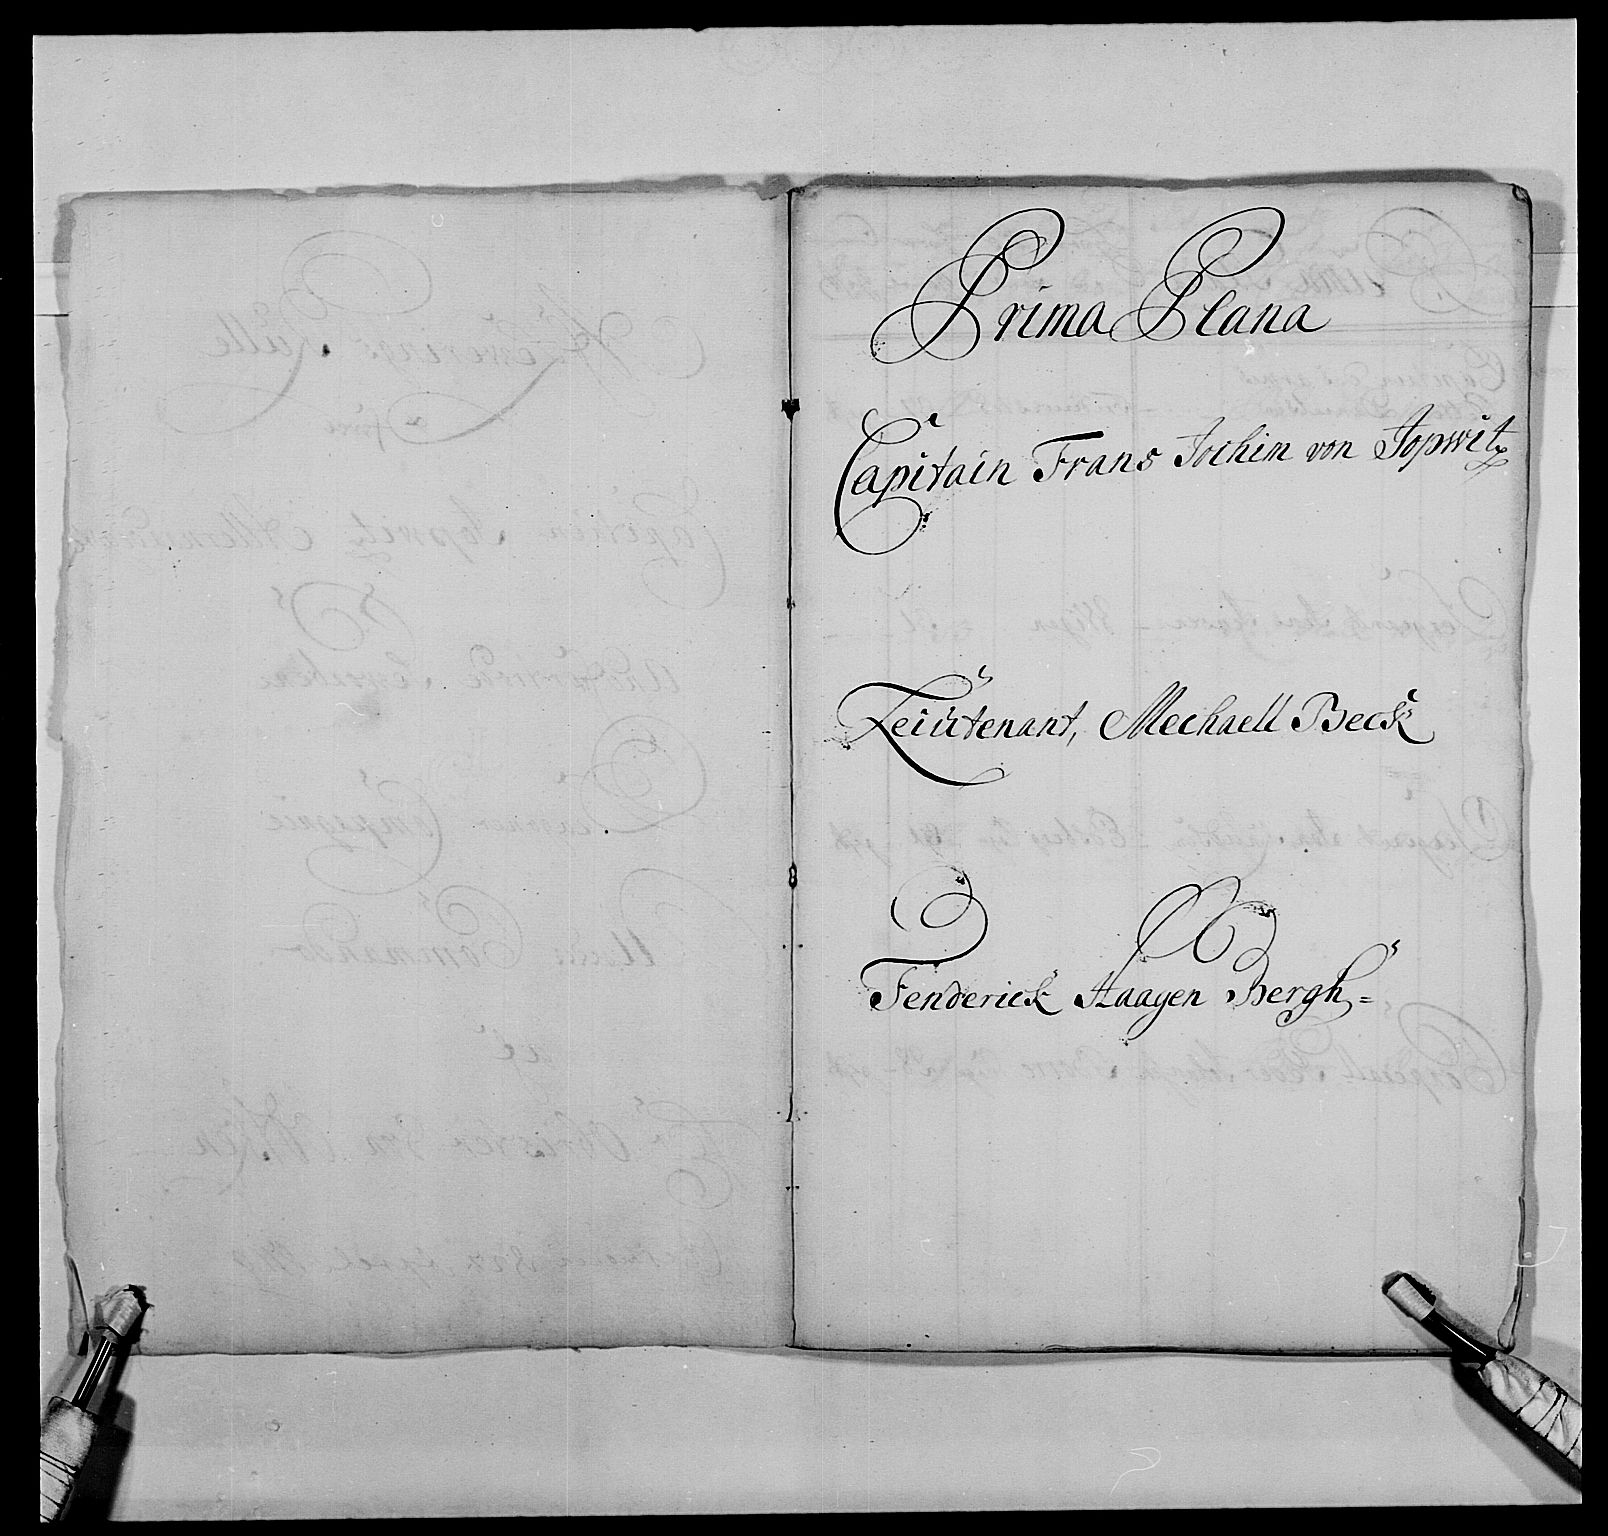 Prima Plana
Capitain Frans Jochim von Topwitz
Leiütenant, Mechaell Beck
Fenderick Haagen Bergh=